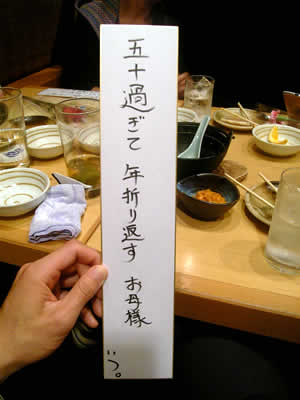 五十過ぎて 年折り返す お母様